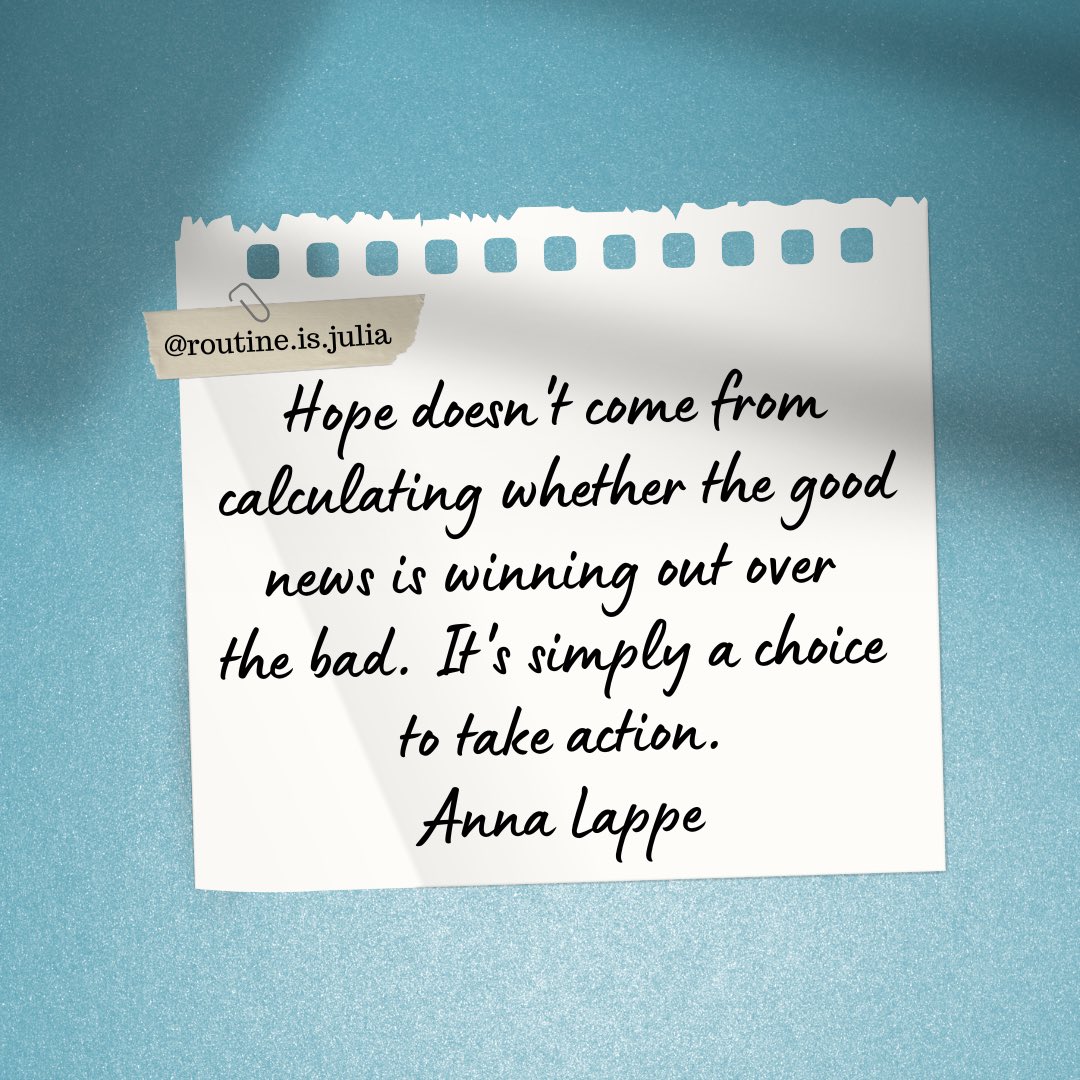 @routine.is.julia
Hope doesn't come from
calculating whether the good
news is winning out over
the bad. It's simply a choice
to take action.
Anna Lappe